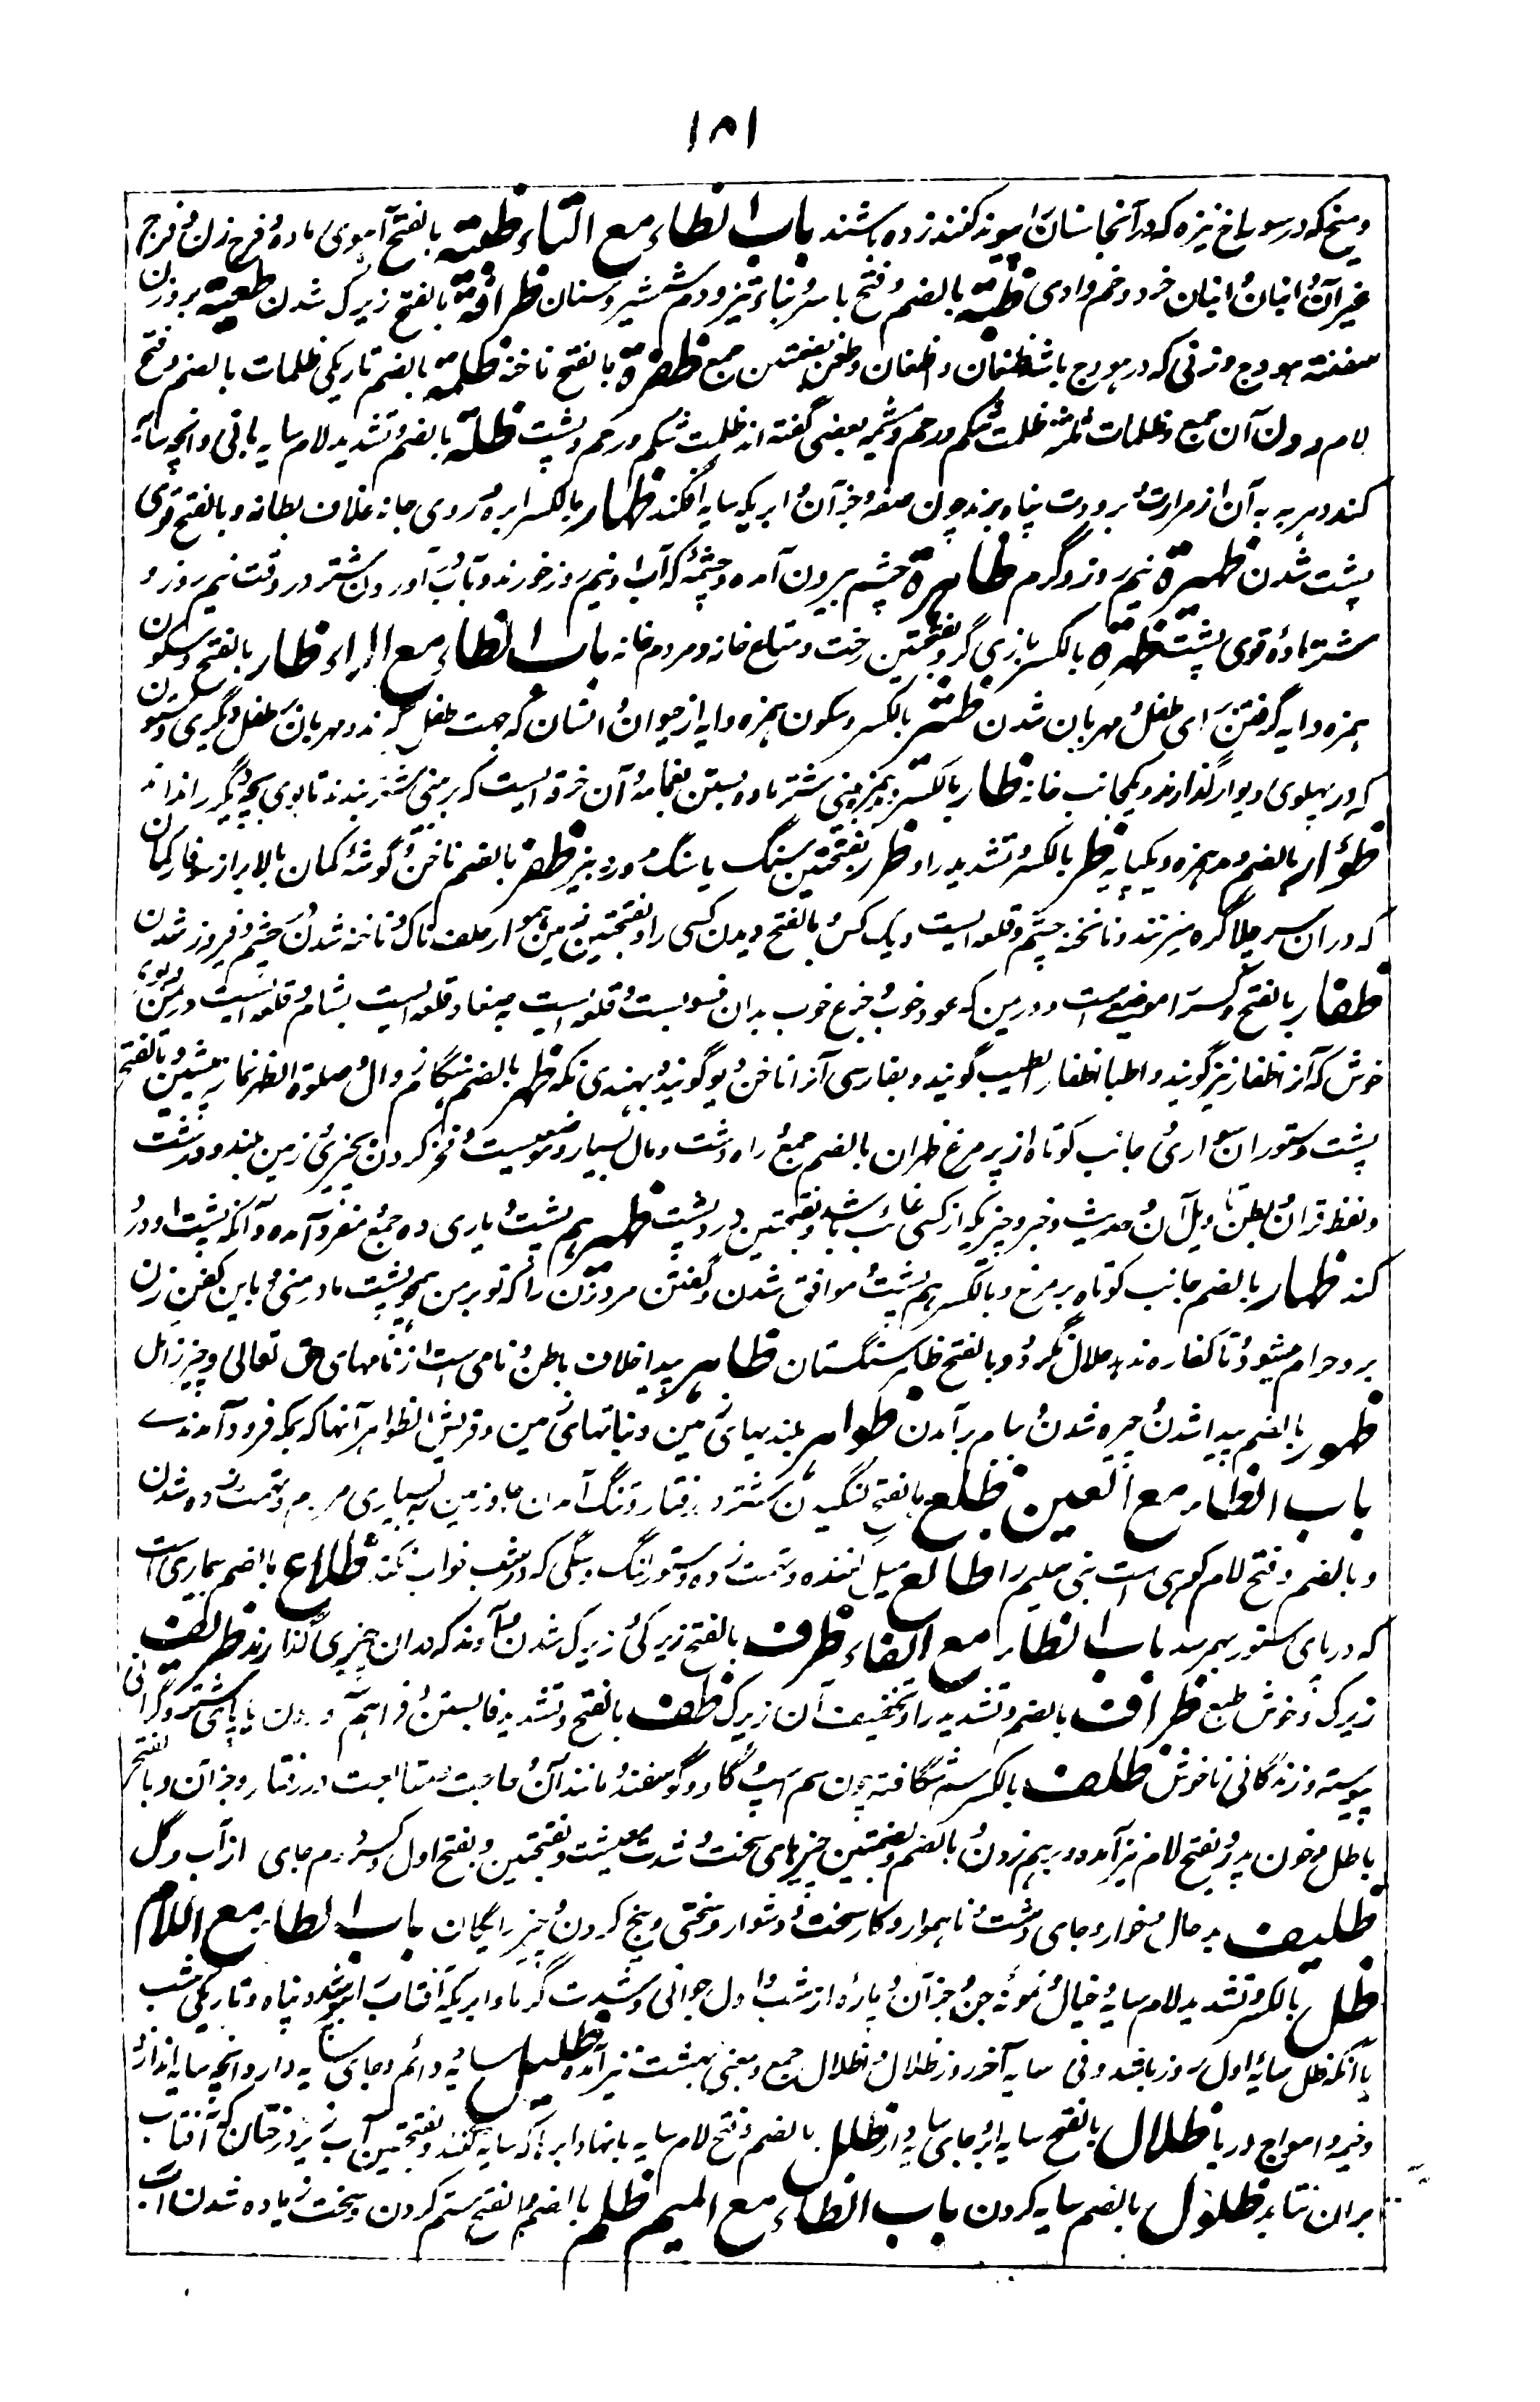 ۱۸۱
و میخ که در سوراخ نیزه که در آنجا سنان را پیوند کنند زده باشند باب الظاء مع التاء ظبیة بالفتح آهوی ماده و فرج زن و فرج
غیر آن و انبان و انبان خرد و خم وادی ظبة بالضم و فتح با سر تیز و دم شمشیر و سنان ظرافة بالفتح زیرک شدن ظعینة بر وزن
سفینه هودج و زنی که در هودج باشد ظعائن و اظعان و ظعن بضمتین جمع ظفرة بالفتح ناخنه ظلمة بالضم تاریکی ظلمات بالضم و فتح
لام و ون آن جمع و ظلمات ثلثه ظلمت شکم و رحم و مشیمه بعضی گفته اند ظلمت شکم و رحم و پشت ظلة بالضم و تشدید لام سایه بانی و انچه سایه
کند و هر چه به آن از حرارت و برودت پناه برند چون صفه و جز آن و ابریکه سایه افکند ظهارة بالکسر ابره و روی جامه خلاف بطانه و بالفتح قوی
پشت شدن ظهیرة نیم روز و گرم ظاهرة چشم بیرون آمده و چشمه که آب او نیم روز خورند و بآب آوردن شتر در وقت نیم روز و
شتر ماده قوی پشت ظهرة بالکسر یازی گر و بفتحتین رخت و متاع خانه و مردم خانه باب الظاء مع الراء ظار بالفتح و سکون
همزه دایه گرفتن برای طفل و مهربان شدن ظئر بالکسر و سکون همزه دایه از حیوان و انسان که جهت طفل گیرند و مهربان بر طفل دیگری و ستون
که در پهلوی دیوار گذارند و یکجانب خانه ظار بالکسر بینی شتر ماده بستن بغمامه و آن خرقه ایست که بر بینی شتر بندند تا بوی بچه دیگر را نداند
ظؤار بالضم و مد همزه ظر بالکسر و تشدید را و ظرر بفتحتین سنگ یا سنگ مدور تیز ظفر بالضم ناخن و گوشه کمان بالاتر از سوفار کمان
که در آن سر چله گره میزنند و ناخنه چشم و قلعه ایست و یک کس و بالفتح دیدن کسی را و بفتحتین زمین هموار علف ناک و ناخنه شدن چشم و فیروز شدن
ظفار بالفتح و کسر را موضعی است در یمن که عود خوب و جزع خوب بدان منسوبست و قلعه ایست به صنعا و قلعه ایست بشام و قلعه ایست در یمن
خوش که آنرا اظفار نیز گویند و اطبا اظفار الطیب گویند و بفارسی آنرا ناخن بویا گویند و بهندی نکه ظهر بالضم هنگام زوال و صلوة الظهر نماز پیشین و بالفتح
پشت و ستوران سواری و جانب کوتاه از پر مرغ ظهران بالضم جمع و راه دشت و مال بسیار و موضعیست و فخر کردن بچیزی و زمین بلند و درشت
و لفظ قرآن و بطن تاویل آن و حدیث و خبر و چیزیکه از کسی غائب باشد و بفتحتین درد پشت ظهیر هم پشت و یاری ده جمع و مفرد آمده و آنکه پشت او درد
کند ظهار بالضم جانب کوتاه پر مرغ و بالکسر هم پشت و موافق شدن و گفتن مرد زن را که تو بر من همچو پشت مادر منی و باین گفتن زن
برو حرام میشود و تا کفاره ندهد حلال نگردد و بالفتح ظاهر سنگستان ظاهر پیدا خلاف باطن و نامی است از نامهای حق تعالی و چیز زائل
ظهور بالضم پیدا شدن و چیره شدن و ببام برآمدن ظواهر بلندیهای زمین و نباتهای زمین و قریش الظواهر آنها که بمکه فرود آمدندے
باب الظاء مع العین ظلع بالفتح لنگیدن شتر در رفتار و تنگ آمدن جا و زمین به بسیاری مردم و تهمت زده شدن
و بالضم و فتح لام کوهی است بنی سلیم را ظالع میل کننده و تهمت زده و ستور لنگ و سگی که در شب خواب نکند ظلاع بالضم بیماری است
که در پای ستور بهم رسد باب الظاء مع الفاء ظرف بالفتح زیرکی و زیرک شدن و آوند که در آن چیزی گذارند ظریف
زیرک و خوش طبع ظراف بالضم و تشدید را و تخفیف آن زیرک ظف بالفتح و تشدید فا بستن و فراهم آوردن پاهای شتر و گرانی
پیوسته و زندگانی ناخوش ظلف بالکسر شگافته چون سم اسپ و گاو و گوسفند و مانند آن و حاجت و متابعت در رفتار و جز آن و بالفتح
باطل و خون هدر و بفتح لام نیز آمده و بر هم زدن و بالضم و بضمتین چیزهای سخت و شدت معیشت و بفتحتین و بفتح اول و کسر دوم جای از آب و گل
ظلیف بد حال و خوار و جای درشت و ناهموار و کار سخت و دشوار و سختی و رنج کردن و چیز رایگان باب الظاء مع اللام
ظل بالکسر و تشدید لام سایه و خیال و نمونه جن و جز آن و پاره از شب و اول جوانی و شدت گرما و ابریکه آفتاب را پوشد و پناه و تاریکی شب
یا آنکه ظل سایه اول روز باشد و فی سایه آخر روز ظلال و اظلال جمع و بمعنی بهشت نیز آمده ظلیل سایه دائم و جای سایه دار و انچه سایه اندازد
و خیر و امواج دریا ظلال بالفتح سایه ابر و جای سایه دار ظلل بالضم و فتح لام سایه بانها و ابرها که سایه کنند و بفتحتین آب زیر درختان که آفتاب
بر آن نتابد ظلول بالضم سایه کردن باب الظاء مع المیم ظلم بالضم و بالفتح ستم کردن و سخت زیاده شدن آب